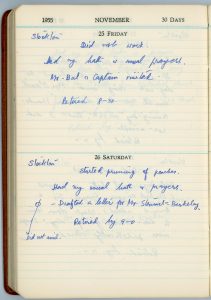 1955 NOVEMBER 30 DAYS
25 FRIDAY
Stockton
Did not work.
Had my bath & usual prayers.
Mr. But a Captain visited.
Retired 8-30
26 SATURDAY
Stockton
Started pruning of peaches.
Had my usual bath & prayers.
- Drafted a letter for Mr. -Berkeley
Retired by 9-0
Did not mail.